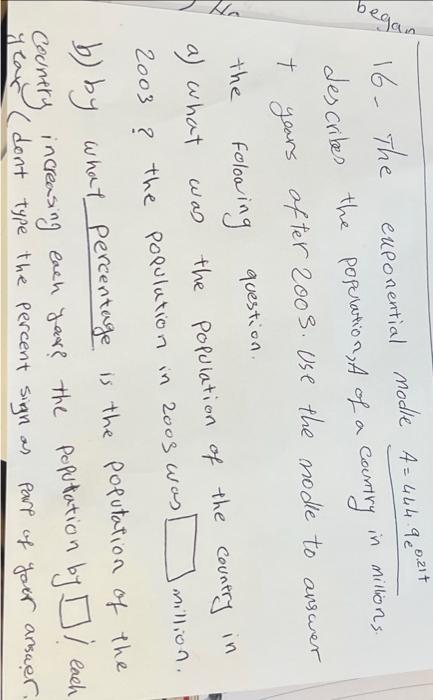 began
16- The exponential modle A = 444.9e^0.21t
describes the population, A of a country in millions
t years after 2003. Use the modle to answer
the folowing question.
a) what was the population of the country in
2003? the population in 2003 was □ million.
b) by what percentage is the population of the
country increasing each year? the population by □ % each
year (dont type the percent sign as part of your answer.